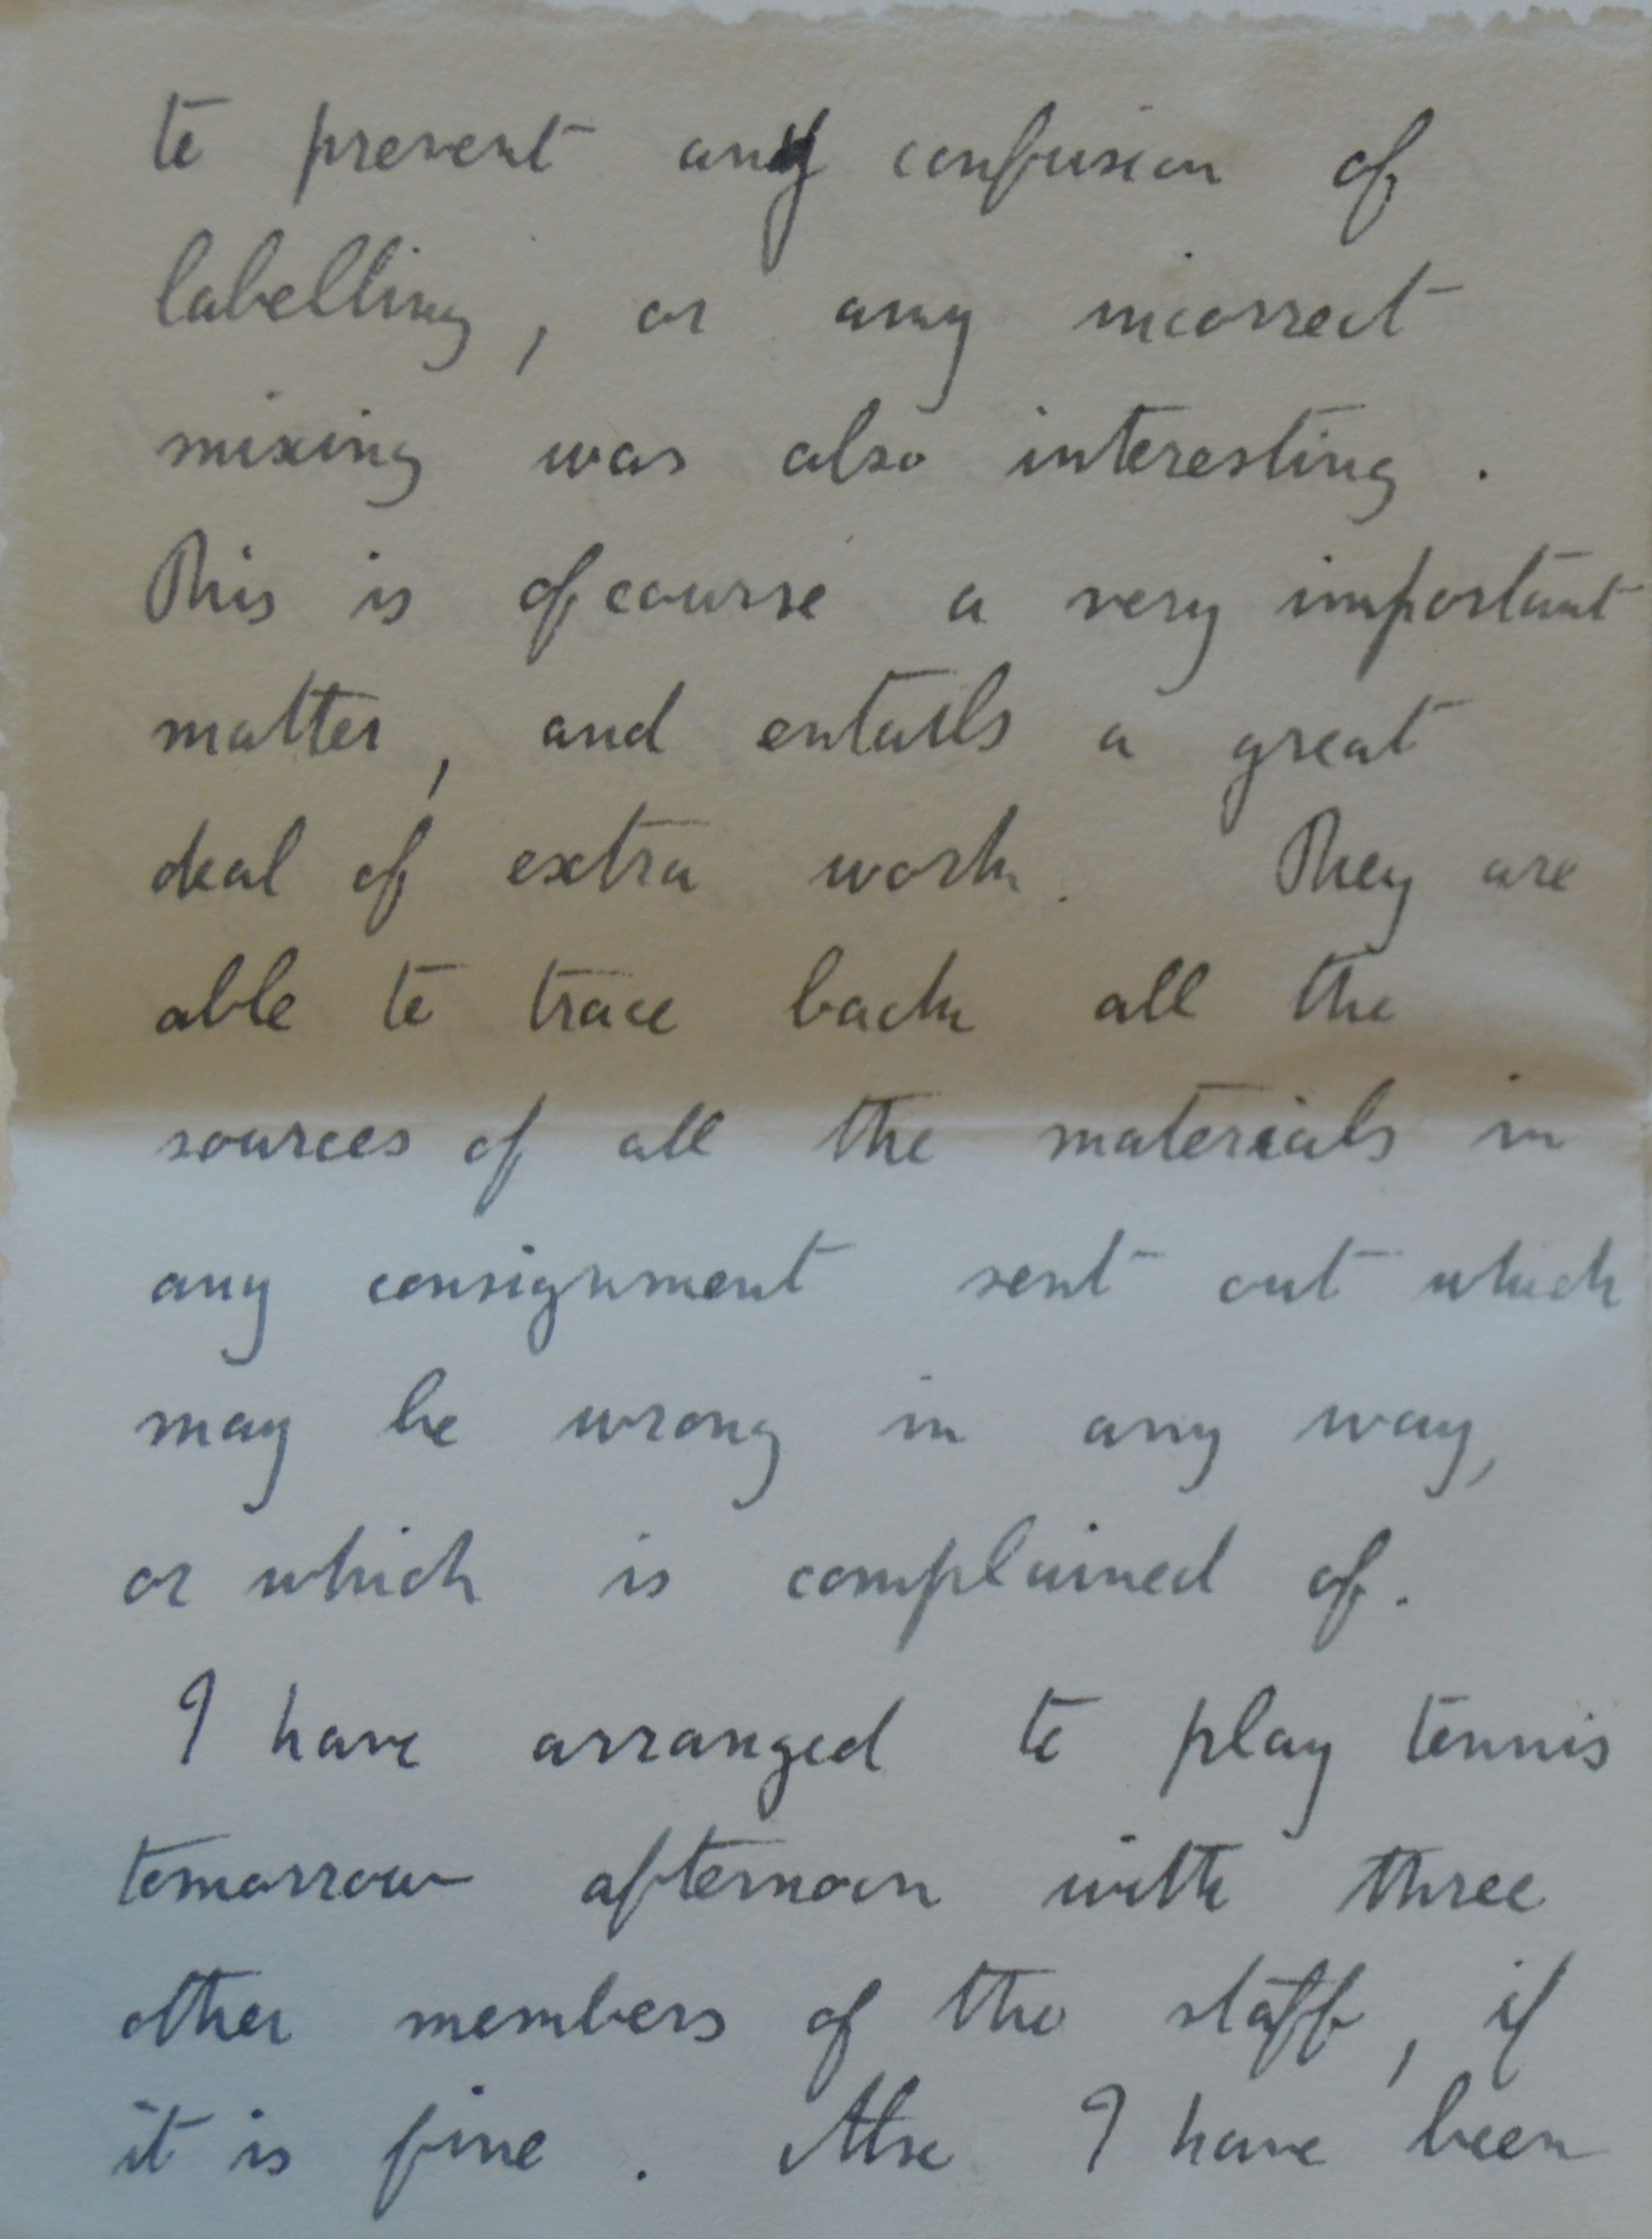 to prevent any confusion of
labelling, or any incorrect
mixing was also interesting.
This is ofcourse a very important
matter, and entails a great
deal of extra work. They are
able to trace back all the
sources of all the materials in
any consignment sent out which
may be wrong in any way,
or which is complained of.
I have arranged to play tennis
tomorrow afternoon with three
other members of the staff, if
it is fine. Also I have been